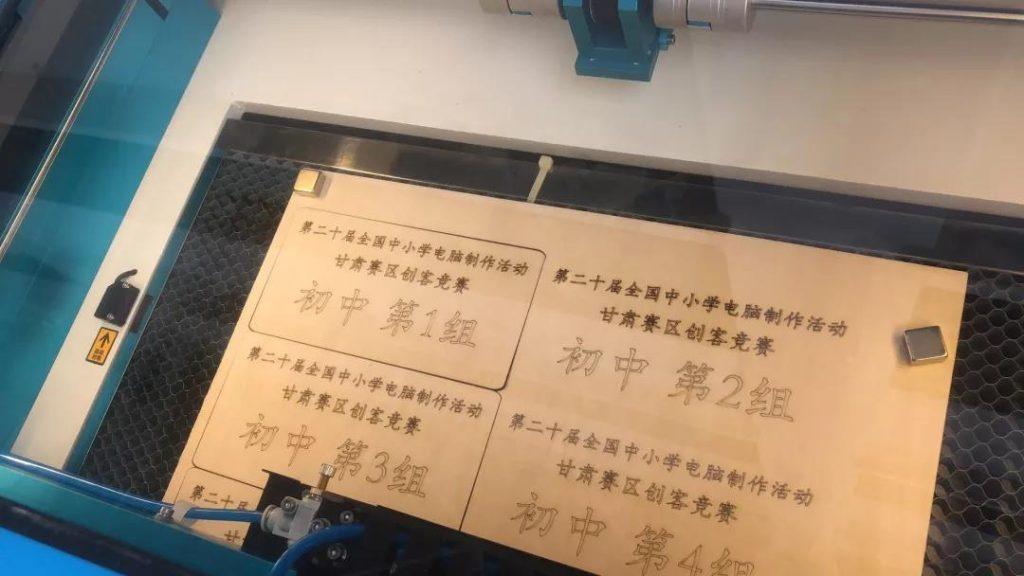 第二十届全国中小学电脑制作活动
甘肃赛区创客竞赛
初中 第1组
第二十届全国中小学电脑制作活动
甘肃赛区创客竞赛
初中 第2组
第二十届全国中小学电脑制作活动
甘肃赛区创客竞赛
初中 第3组
第二十届全国中小学电脑制作活动
甘肃赛区创客竞赛
初中 第4组
第二十届
甘